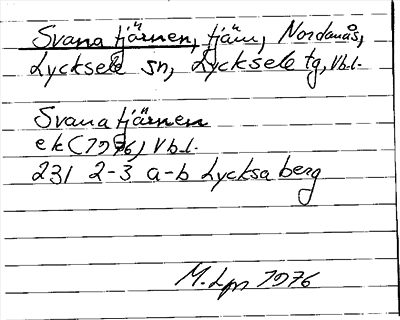 Svanatjärnen, tjärn, Nordanås,
Lycksele sn, Lycksele tg, Vb.l.
Svanatjärnen
ek (1976) Vb.l.
231 2-3 a-b Lycksaberg
M. Lpr 1976